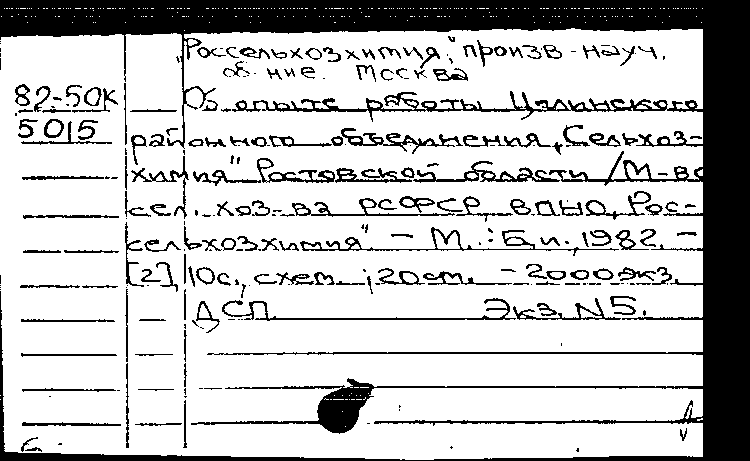 „Россельхозхимия," произв-науч.
об-ние. Москва
82-50К Об опыте работы Целинского
5015 районного объединения „Сельхоз-
химия" Ростовской области /М-во
сел. хоз-ва РСФСР, ВПНО „Рос-
сельхозхимия". – М. : Б.и., 1982. –
[2], 10с., схем. ; 20см. – 2000экз.
ДСП Экз. N5.